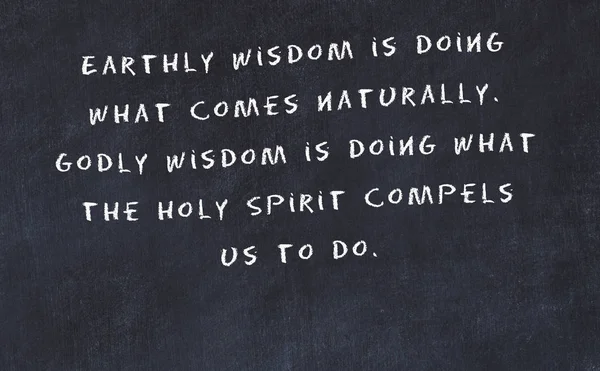 EARTHLY WISDOM IS DOING
WHAT COMES NATURALLY.
GODLY WISDOM IS DOING WHAT
THE HOLY SPIRIT COMPELS
US TO DO.